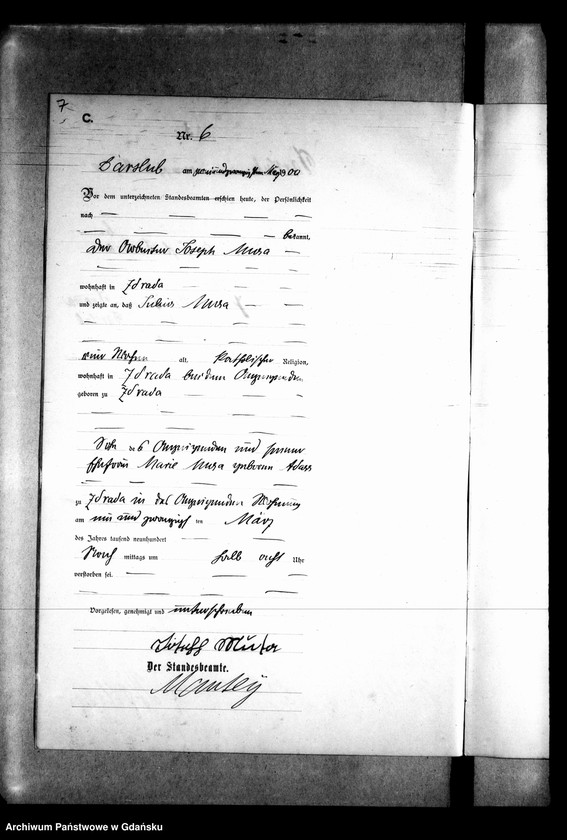 7
C.
Nr. 6
Darslub am zweiundzwanzigsten März 1900
Vor dem unterzeichneten Standesbeamten erschien heute, der Persönlichkeit
nach
bekannt,
der Arbeiter Joseph Musa
wohnhaft in Zdrada
und zeigte an, daß Julius Musa
vier Wochen alt, katholischer Religion,
wohnhaft in Zdrada bei dem Anzeigenden
geboren zu Zdrada
Sohn des Anzeigenden und seiner
Ehefrau Marie Musa geborene
zu Zdrada in des Anzeigenden Wohnung
am ein und zwanzigsten März
des Jahres tausend neunhundert
Nach mittags um halb acht Uhr
verstorben sei.
Vorgelesen, genehmigt und unterschrieben
Joseph Musa
Der Standesbeamte.
Archiwum Państwowe w Gdańsku